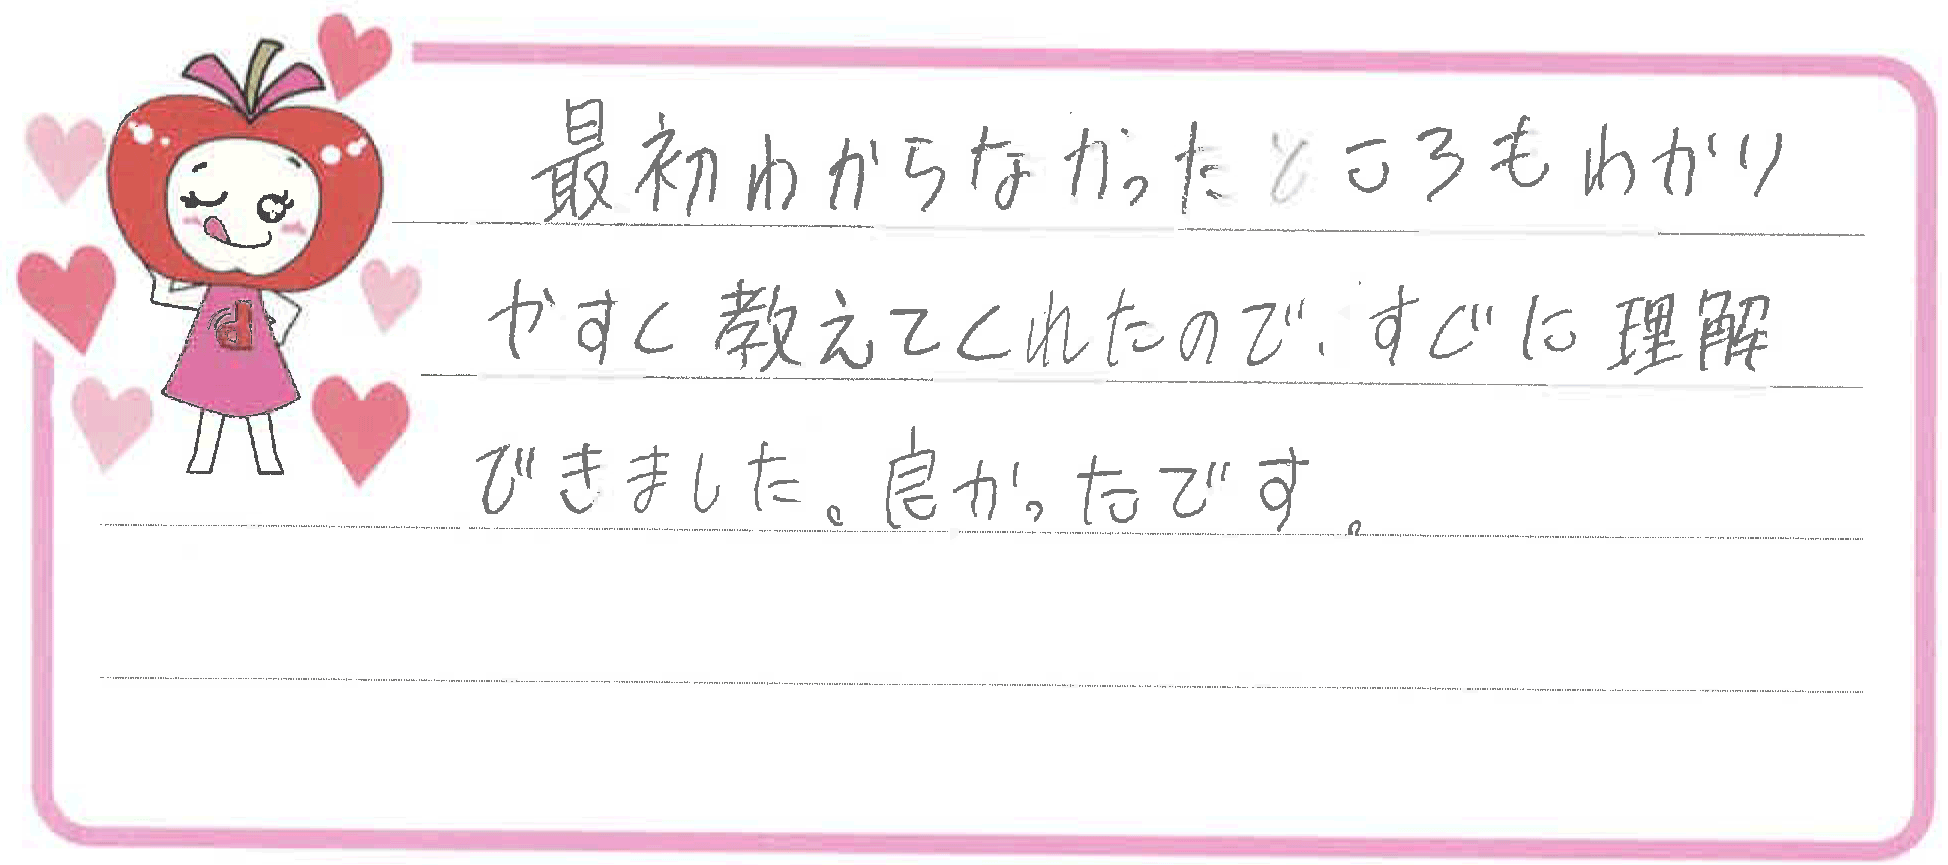 最初わからなかったところもわかり
やすく教えてくれたので、すぐに理解
できました。良かったです。